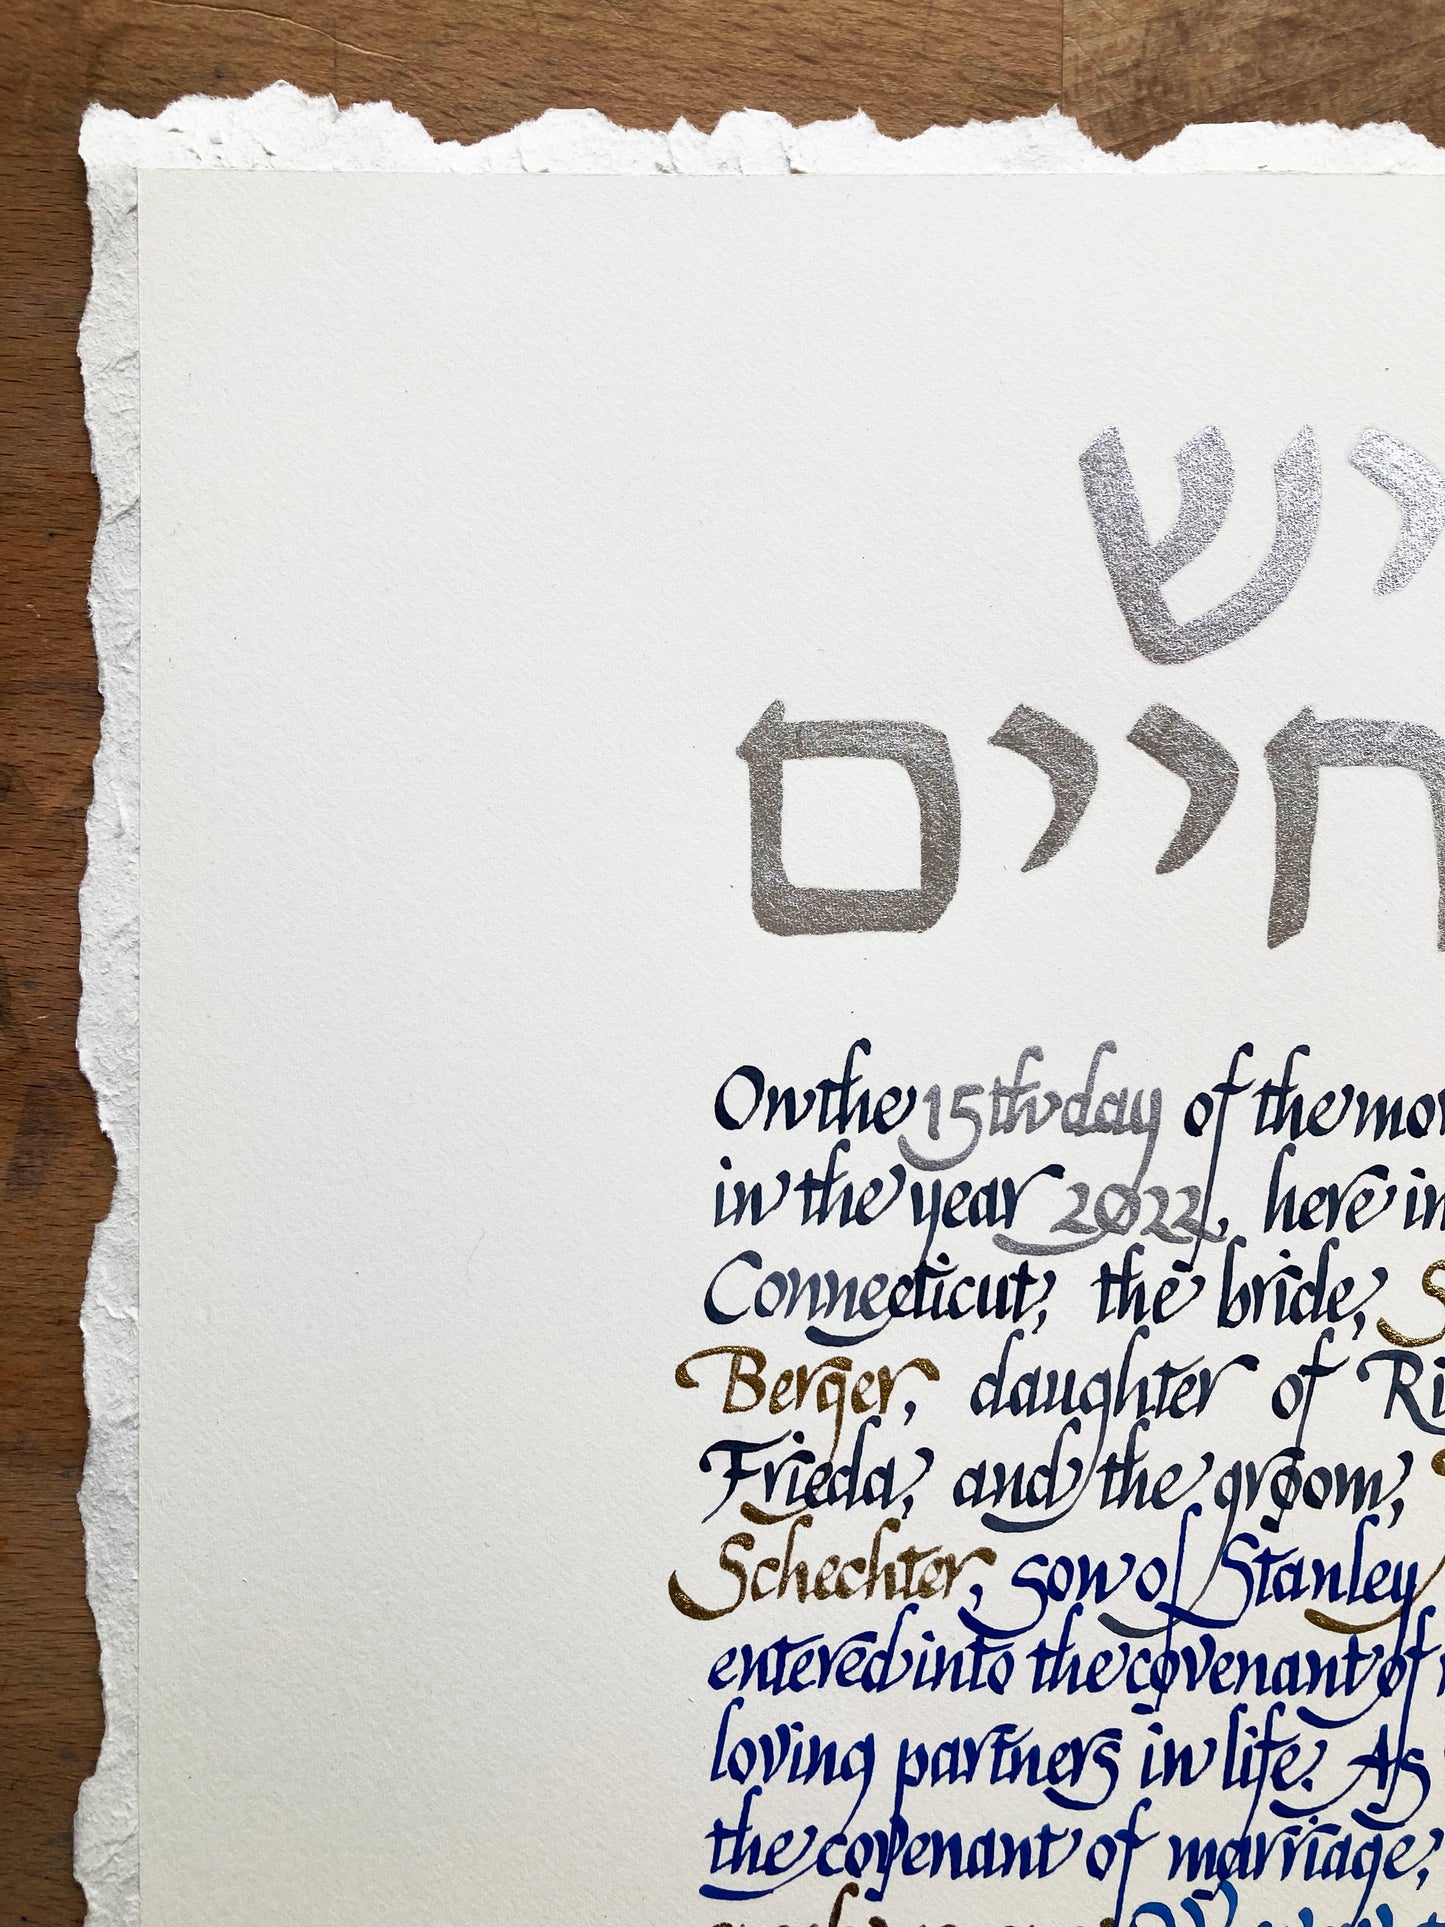 יש
חיים
On the 15th day of the mo
in the year 2022, here in
Connecticut, the bride, S
Berger, daughter of Ri
Frieda, and the groom,
Schechter, son of Stanley
entered into the covenant of
loving partners in life. As
the covenant of marriage,